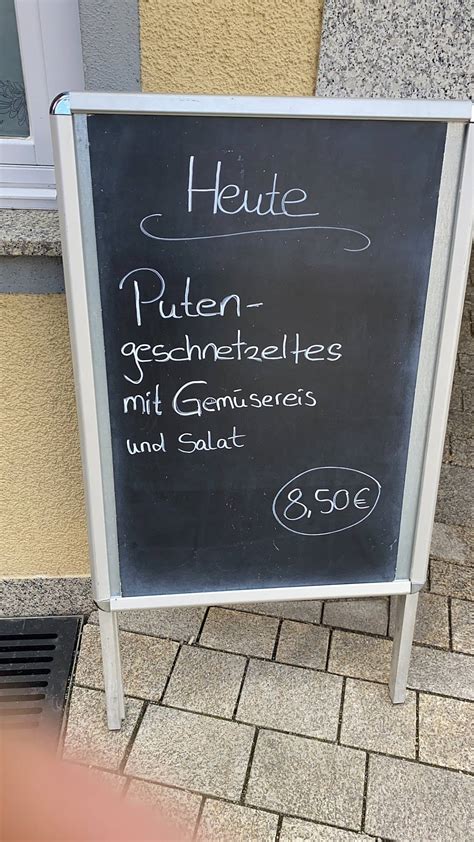 Heute
Puten-
geschnetzeltes
mit Gemüsereis
und Salat
8,50€